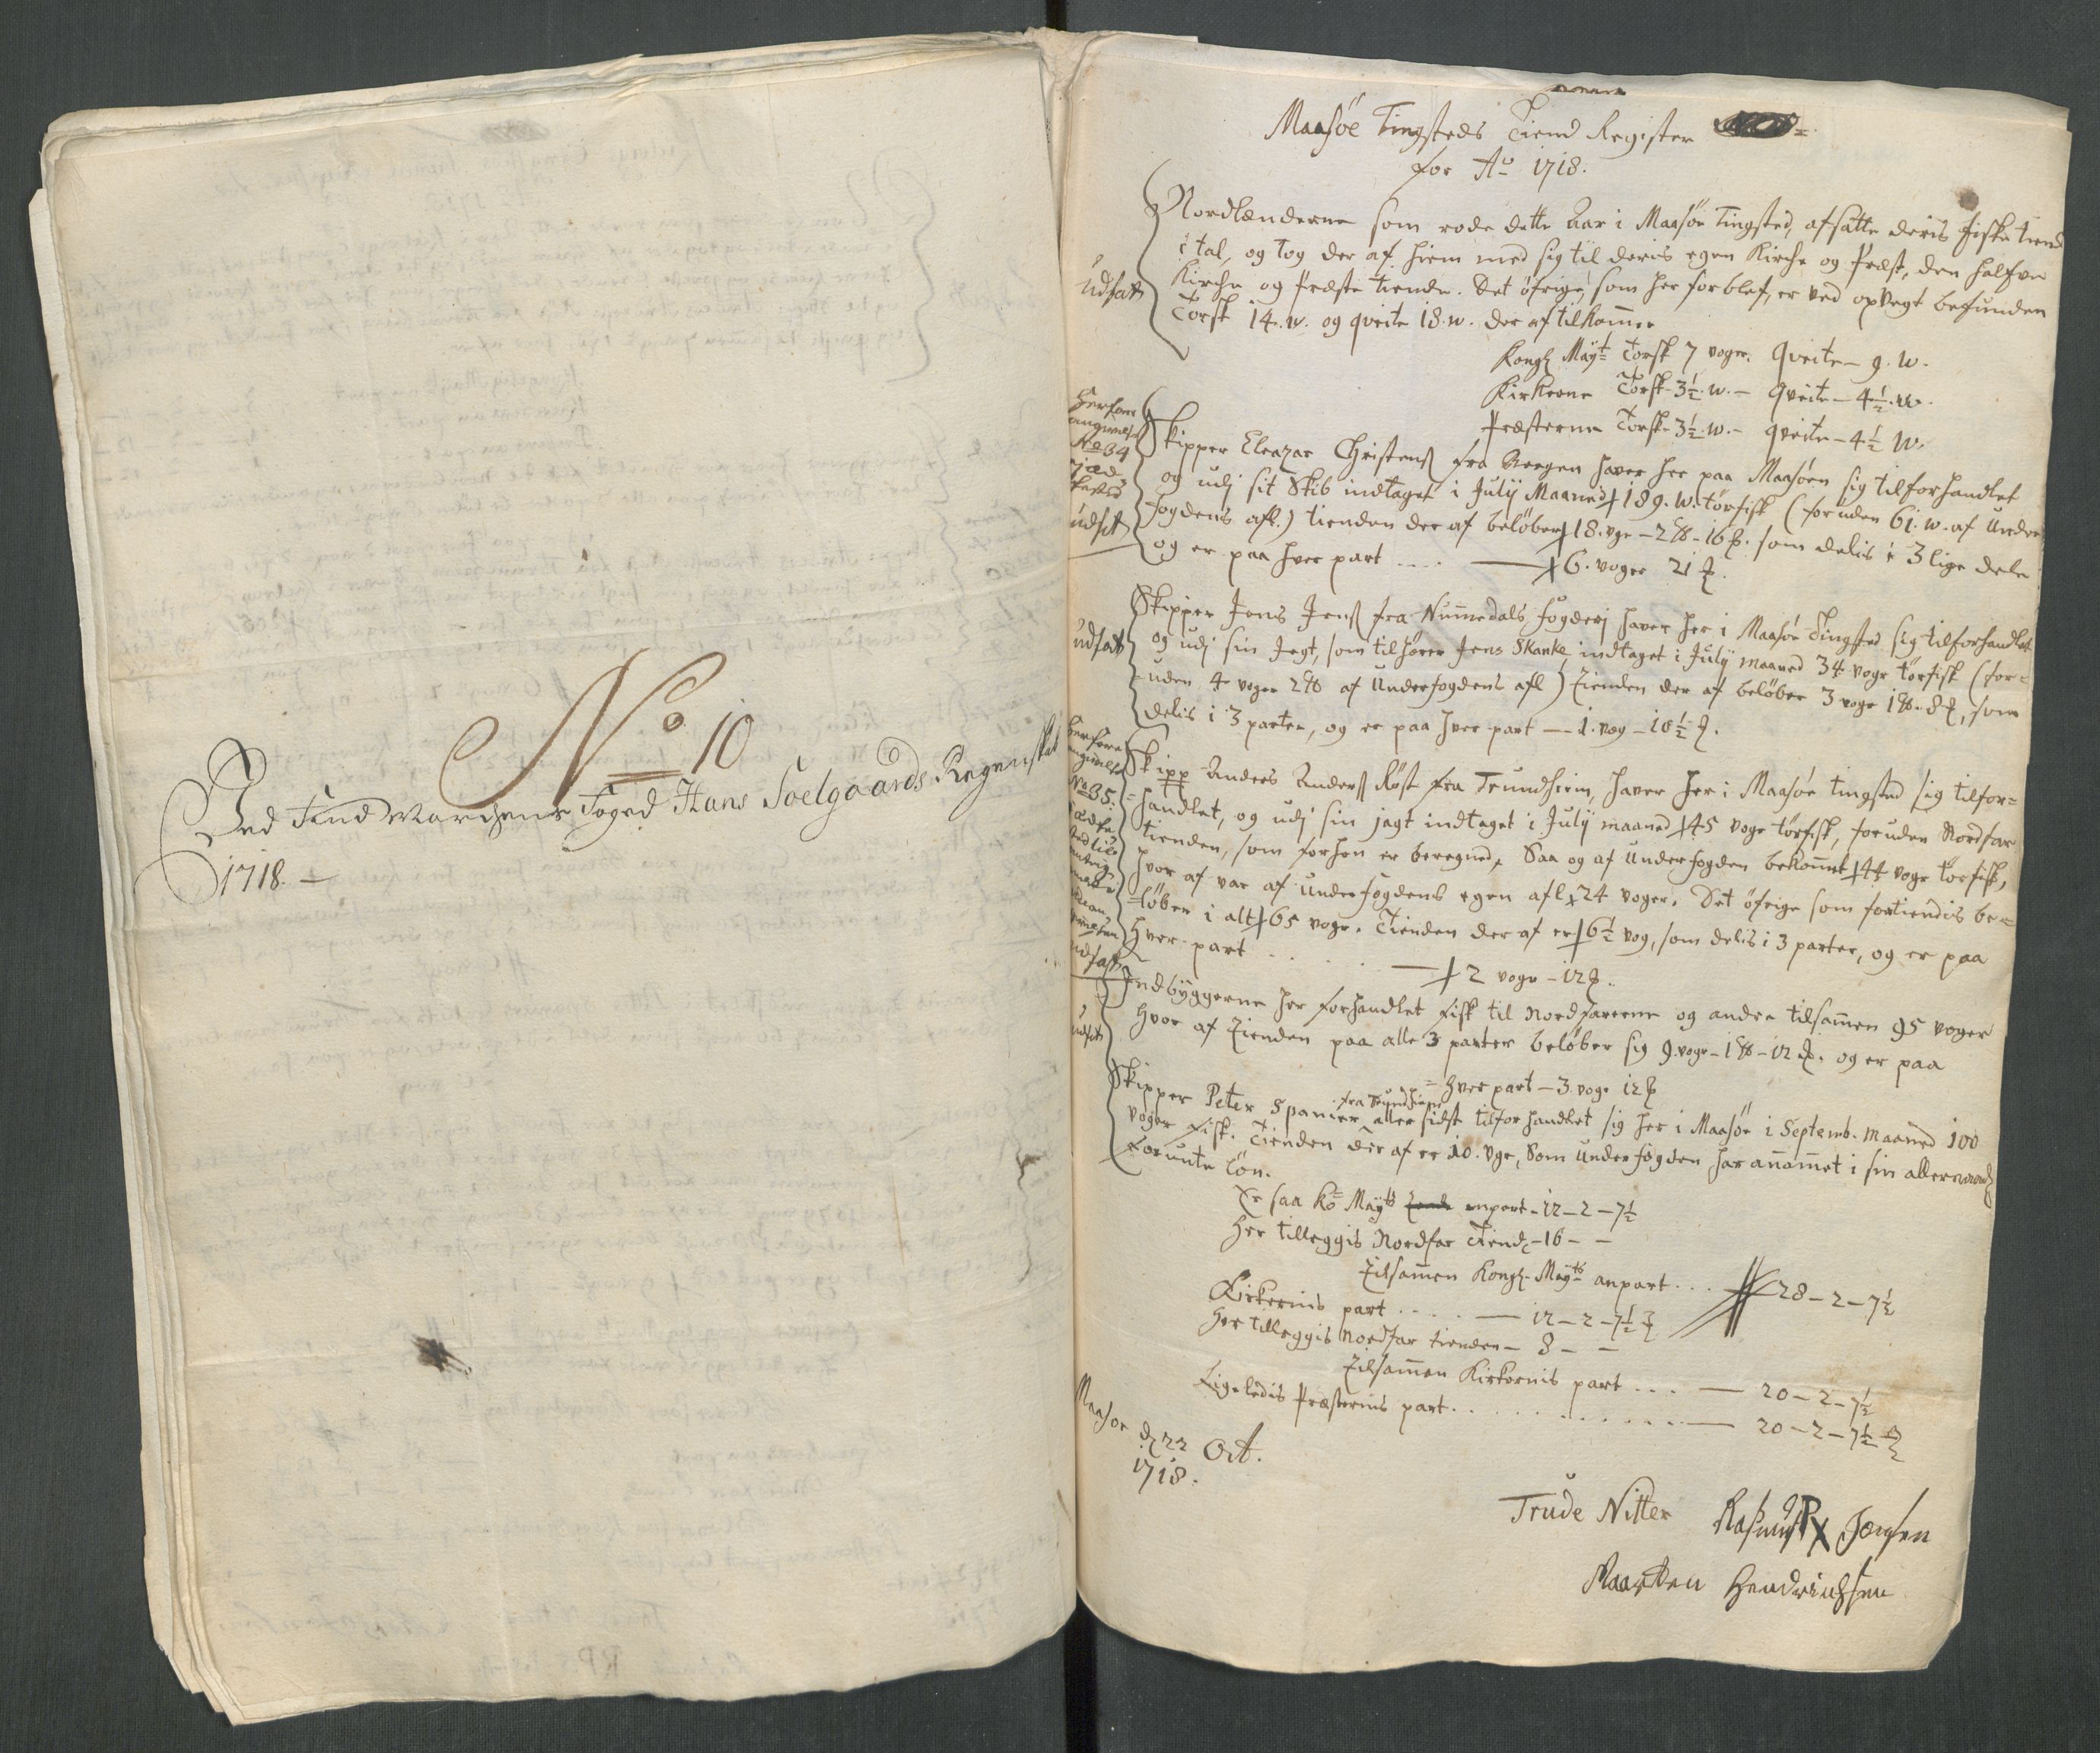 No 10
Ved Findmarchens Foged Hans Soelgaards Regenskab
1718.
Maasöe Tingsteds Tiend Register
for Ao 1718.
Nordlænderne som rode dette Aar i Maasöe Tingsted, afsatte deris fiske tiend
i tal, og tog der af hiem med sig til deris egen Kirche og Præst, den halfve
Kirche og Præste tiende. Det öfrige, som her forblef, er ved opvegt befunden
udsat
Torsk 14. w. og qveite 18. w. der af tilkommer
Kongl Mayt Torsk 7 voger. Qveite - 9. w.
Kirkerne Torsk - 3½. w. - Qveite - 4½. w.
Præsterne Torsk - 3½. w. - qveite - 4½ w.
Herfore
angivelse
No 34
udsat
Skipper Eleazar Christens fra Bergen haver her paa Maasöen sig tilforhandlet
og udj sit Skib indtaget i Julij Maaned 189. w. törfisk (foruden 61. w. af Under
fogdens afl.) tienden der af belöber 18. vger - 2 - 16. som delis i 3 lige dele
og er paa hver part .... 6. voger 21
udsat
Skipper Jens Jens fra Numedals fogderj haver her i Maasöe Tingsted sig tilforhandlet
og udj sin Jegt, som tilhörer Jens Skanke, indtaget i Julij maaned 34 voger törfisk (for=
uden 4 voger 2 af Underfogdens afl) Tienden der af belöber 3 voger 1 - 8, som
delis i 3 parter, og er paa hver part - 1. vog - 10½.
Herfore
angivelse
No 35.
udsat
Skipp Anders Anders Röst fra Trundhiem, haver her i Maasöe tingsted sig tilfor=
handlet, og udj sin jagt indtaget i Julij maaned 45 voger törfisk, foruden Nordfar
tienden, som forhen er beregned, Saa og af Underfogden bekommet 44 voger törfisk,
hvor af var af Underfogdens egen afl 24 voger. Det öfrige som fortiendis be=
löber i alt 65 voger. Tienden der af er 6½ vog, som delis i 3 parter, og er paa
hver part ..... 2 voger - 12.
udsat
Indbyggerne her forhandlet fisk til Nordfarerne og andre tilsamen 95 voger
hvor af Tienden paa alle 3 parter belöber sig 9. voger - 1 - 12. og er paa
hver part - 3. voger 12
Skipper Peter Spanier fra Trundhiem aller sidst tilforhandlet sig her i Maasöe i Septemb. Maaned 100
voger fisk. Tienden der af er 10. vger, Som Underfogden har anamet i sin allernaad
forunte Lön.
Er saa Ko Mayts anpart - 12 - 2 - 7½
Her tilleggis Nordfar Tiend - 16 - -
Tilsamen Kongl. Mayts anpart ... 28 - 2 - 7½
Kirkernis part .... 12 - 2 - 7½
Her tilleggis Nordfar tienden - 8 - -
Tilsamen Kirkernis part .... 20 - 2 - 7½
Ligeledis Præsternis part ........ 20 - 2 - 7½
Maasöe d 22 Oct.
1718.
Trude Nitter Rasmus R Jensen
Maarten Hendrichsen